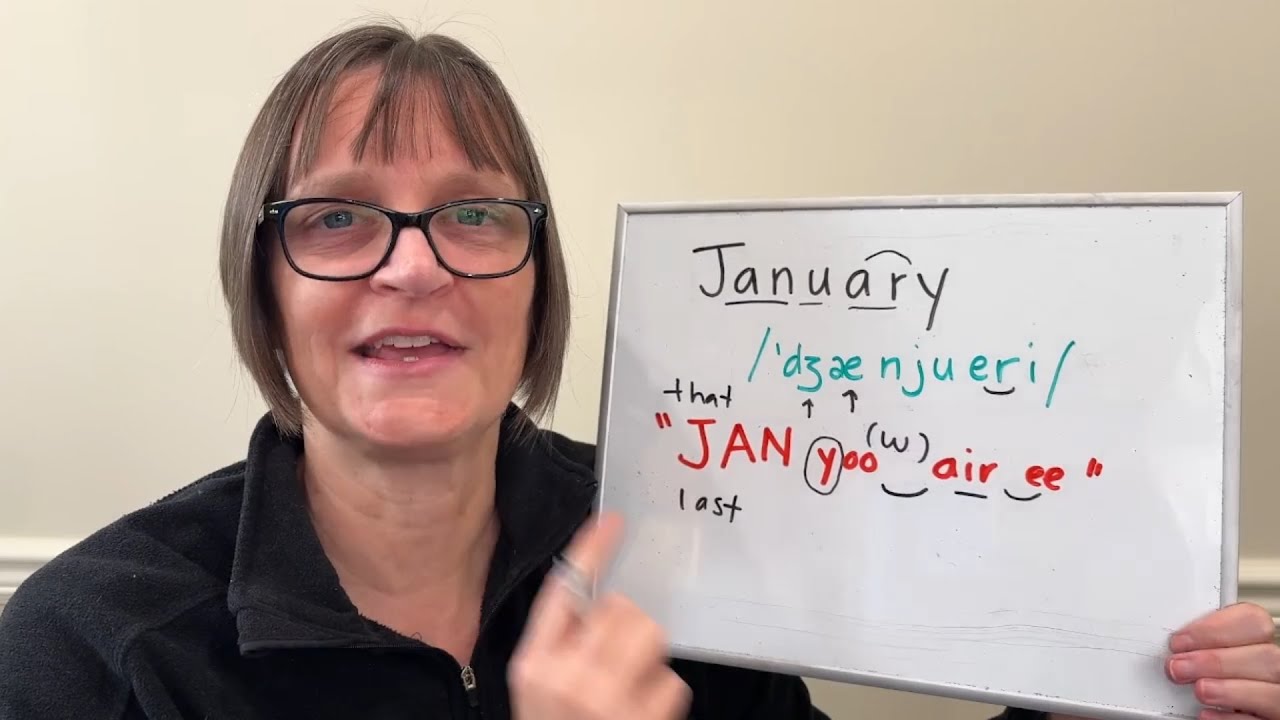 January
/ˈdʒænjueri/
that
"JAN yoo (w) air ee"
last